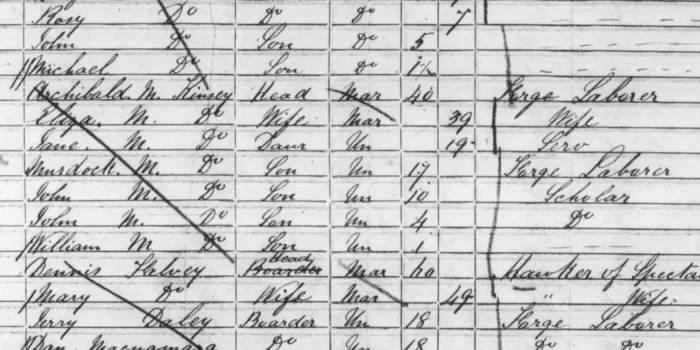 Rosy Do Do Do 7
John Do Son Do 5
Michael Do Son Do 1½
Archibald M. Kinsey Head Mar 40 Forge Laborer
Eliza. M. Do Wife Mar 39 Wife
Jane. M. Do Daur Un 19 Serv
Murdock. M. Do Son Un 17 Forge Laborer
John M. Do Son Un 10 Scholar
John M. Do Son Un 4 Do
William M Do Son Un 1
Dennis Halvey Boarder Head Mar Hawker of Specta
Mary Do Wife Mar 49 " Wife
Jerry Daley Boarder Un 18 Forge Laborer
Dan Macnamara Do Un 18 Do Do